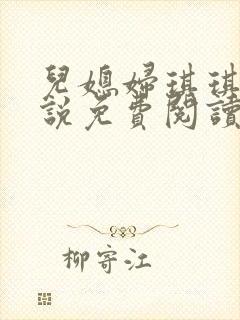 兒媳婦琪琪
說免費閱讀
柳寄江